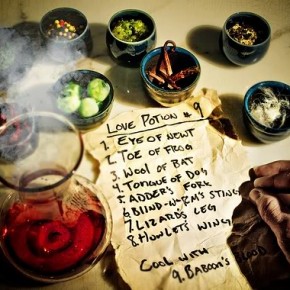 LOVE POTION # 9
1. EYE OF NEWT
2. TOE OF FROG
3. WOOL OF BAT
4. TONGUE OF DOG
5. ADDER'S FORK
6. BLIND-WORM'S STING
7. LIZARD'S LEG
8. HOWLET'S WING
COOL WITH
9. BABOON'S BLOOD